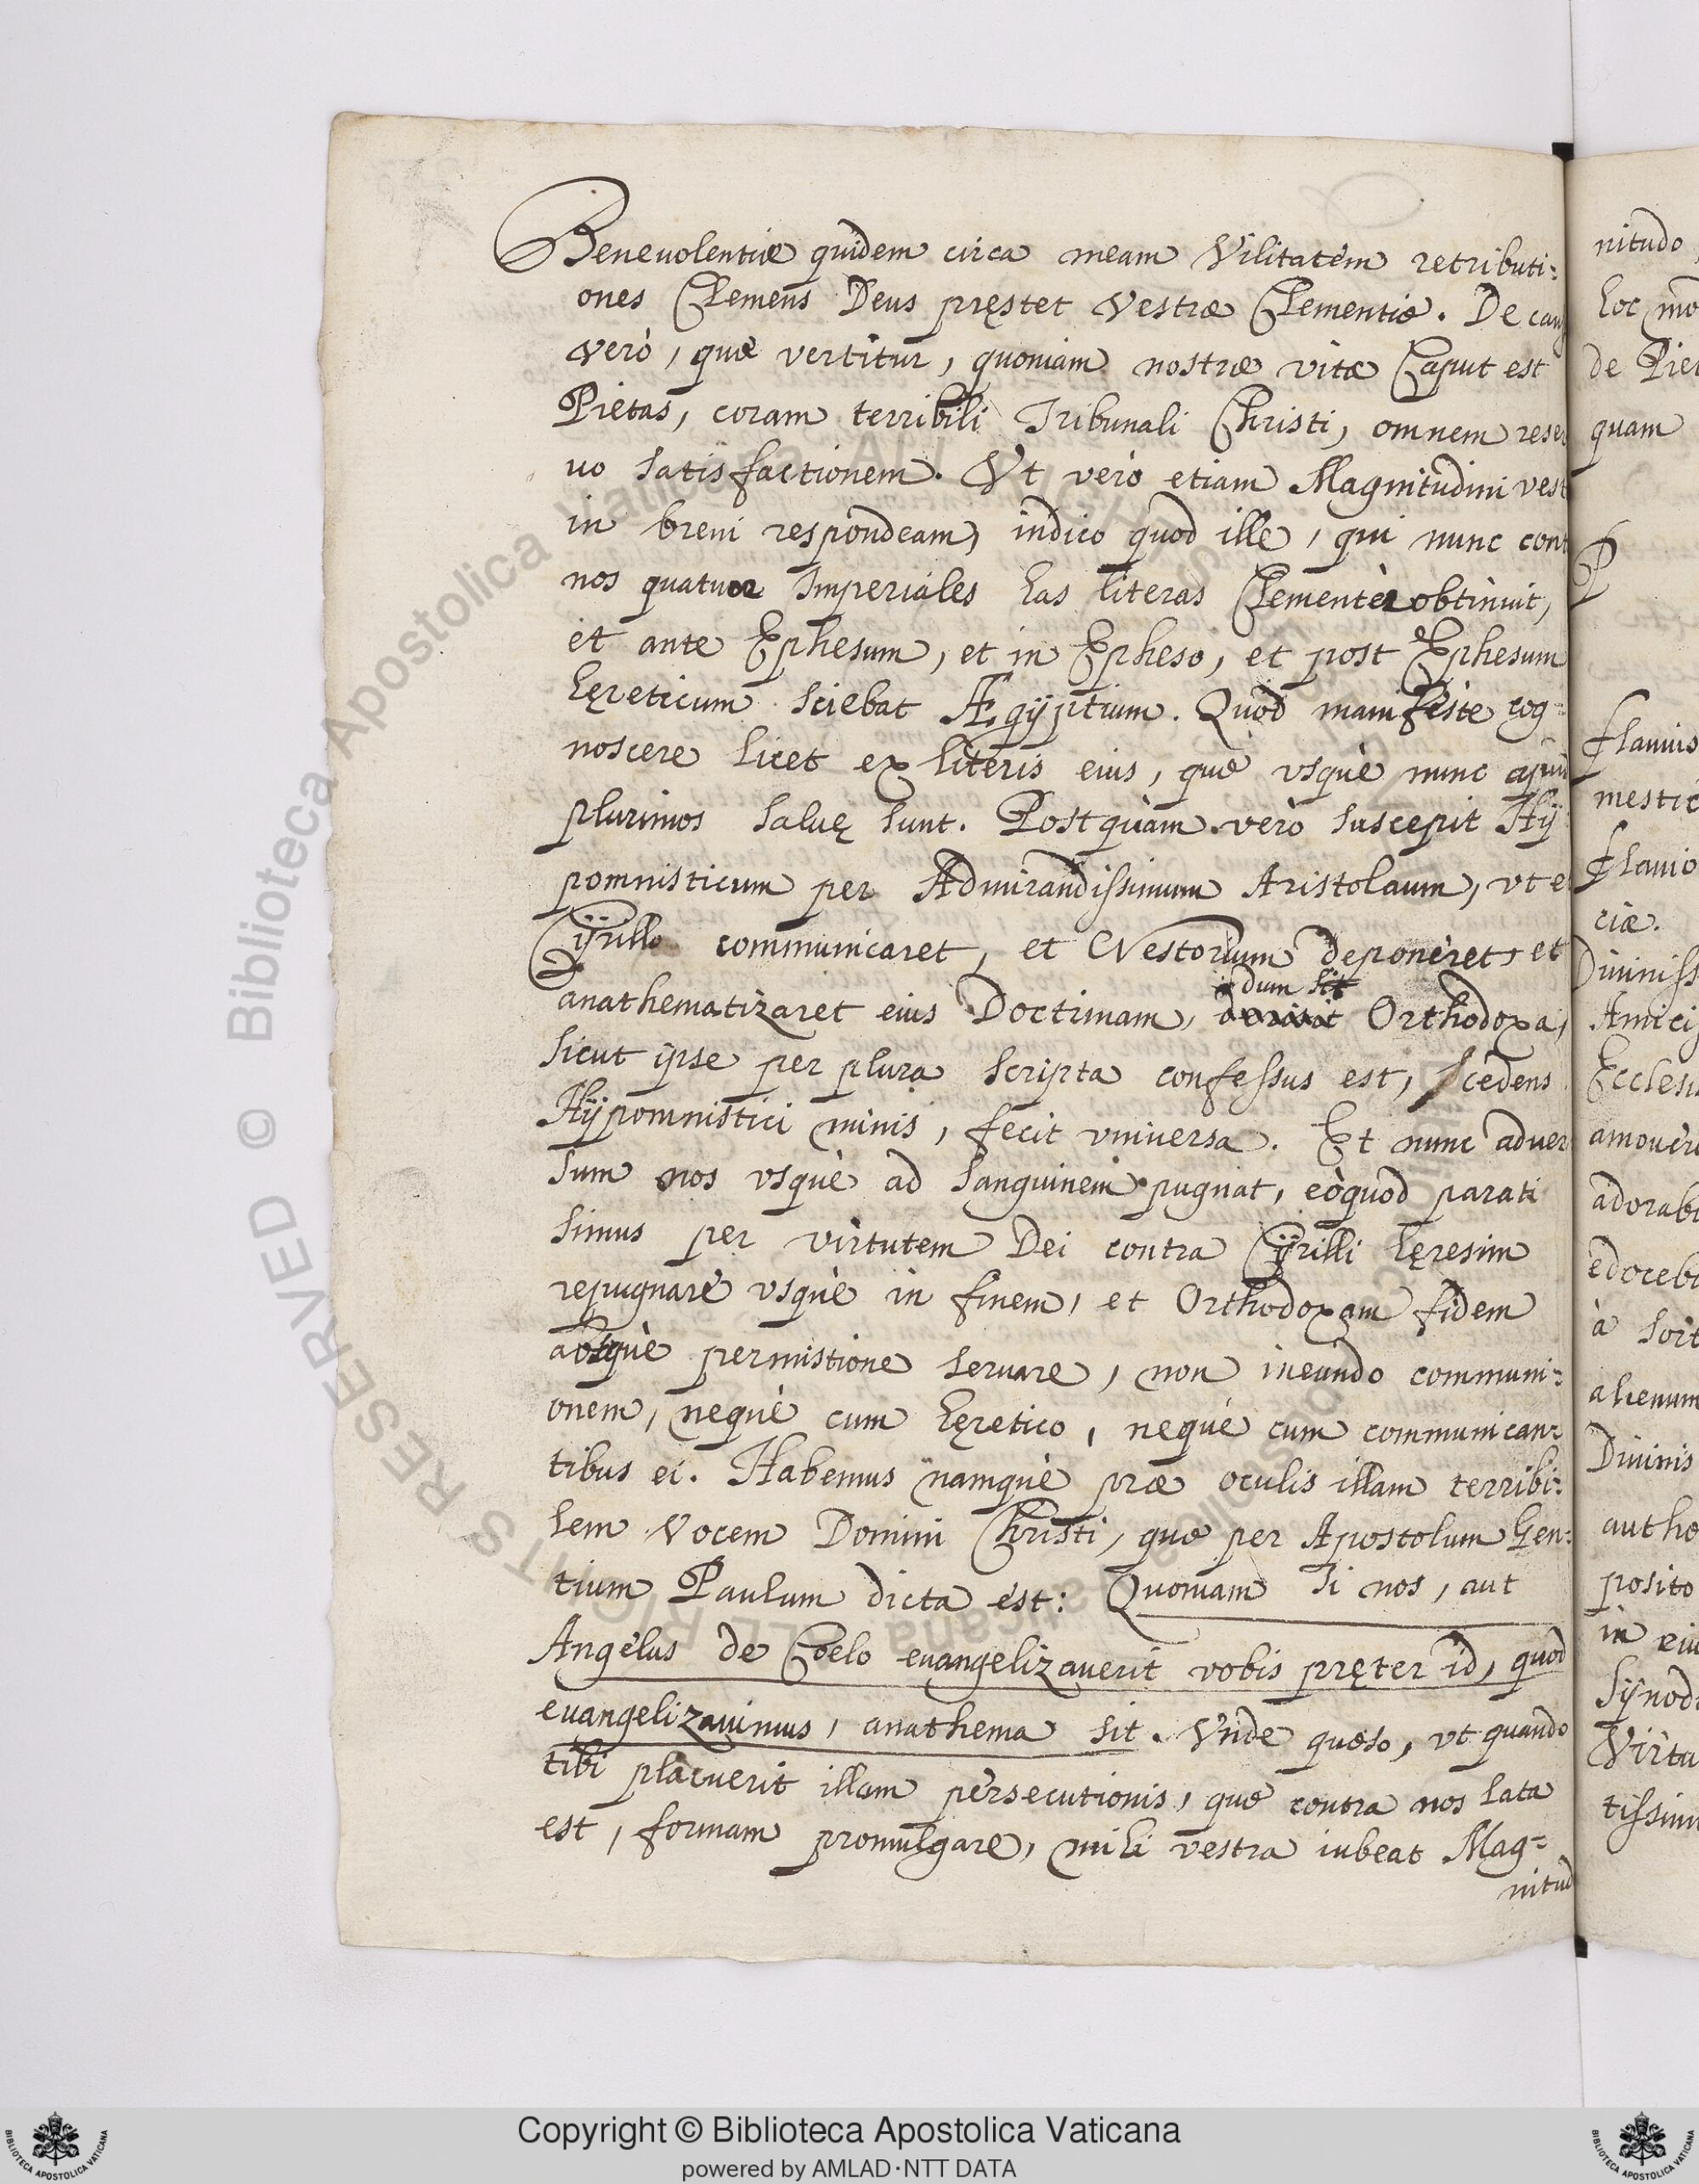 Beneuolentiæ quidem circa meam Vilitatem retributi:
ones Clemens Deus pręstet Vestræ Clementiæ. De cau
verò, quæ vertitur, quoniam nostræ vitæ Caput est
Pietas, coram terribili Tribunali Christi, omnem reser
uo satisfactionem. Vt verò etiam Magnitudini vest
in breui respondeam, indico quod ille, qui nunc cont
nos quatuor Imperiales has literas Clementèr obtinuit,
et ante Ephesum, et in Epheso, et post Ephesum
hęreticum sciebat Ægÿptium. Quod manifestè cog=
noscere licet ex literis eius, quæ vsquè nunc apud
plurimos saluę sunt. Postquàm verò suscepit Hÿ
pomnisticum per Admirandissimum Aristolaum, vt e
Cÿrillo communicaret, et Nestorium deponeret, et
anathematizaret eius Doctrinam, dum sit Orthodoxa,
sicut ipse per plura scripta confessus est, cedens
Hÿpomnistici minis, fecit vniuersa. Et nunc aduer
sum nos vsquè ad sanguinem pugnat, eòquod parati
simus per virtutem Dei contra Cÿrilli hęresim
repugnare vsquè in finem, et Orthodoxam fidem
absquè permistione seruare, non ineundo communi:
onem, nequè cum hęretico, nequè cum communican=
tibus ei. Habemus namquè præ oculis illam terribi:
lem Vocem Domini Christi, quæ per Apostolum Gen:
tium Paulum dicta est: Quoniam si nos, aut
Angelus de Coelo euangelizauerit vobis pręter id, quod
euangelizauimus, anathema sit. Vnde quæso, vt quando
tibi placuerit illam persecutionis, quæ contra nos lata
est, formam promulgare, mihi vestra iubeat Mag=
nitud
nitudo,
hoc mo
de Piet
quam
P
flauius
mestic
flauio
ciæ.
Diuiniss
Amici
Ecclesi
amouer
adorabi
edoceb
à sort
alienum
Diuinis
autho
posito
in eiu
Sÿnod
Virtu
tissim
© Biblioteca Apostolica Vaticana ALL RIGHTS RESERVED
Copyright © Biblioteca Apostolica Vaticana
powered by AMLAD·NTT DATA
BIBLIOTECA APOSTOLICA VATICANA
BIBLIOTECA APOSTOLICA VATICANA